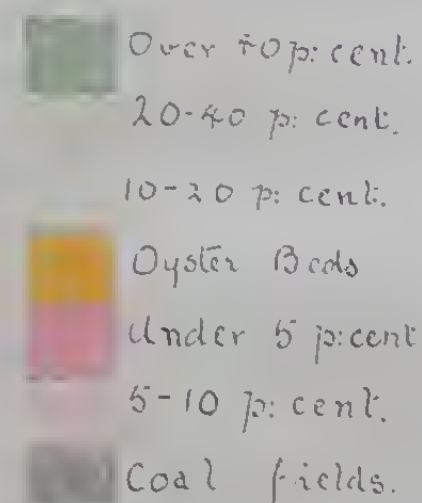 Over 40 p: cent.
20-40 p: cent.
10-20 p: cent.
Oyster Beds
Under 5 p: cent
5-10 p: cent.
Coal fields.